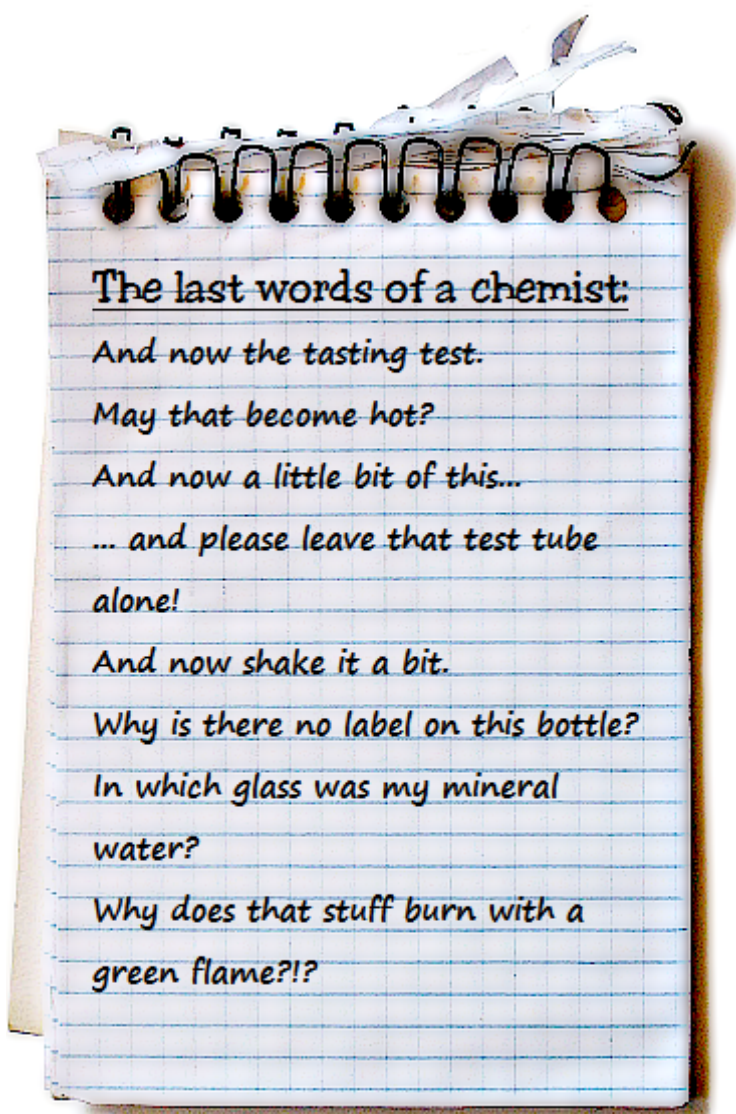 The last words of a chemist:
And now the tasting test.
May that become hot?
And now a little bit of this...
... and please leave that test tube
alone!
And now shake it a bit.
Why is there no label on this bottle?
In which glass was my mineral
water?
Why does that stuff burn with a
green flame?!?